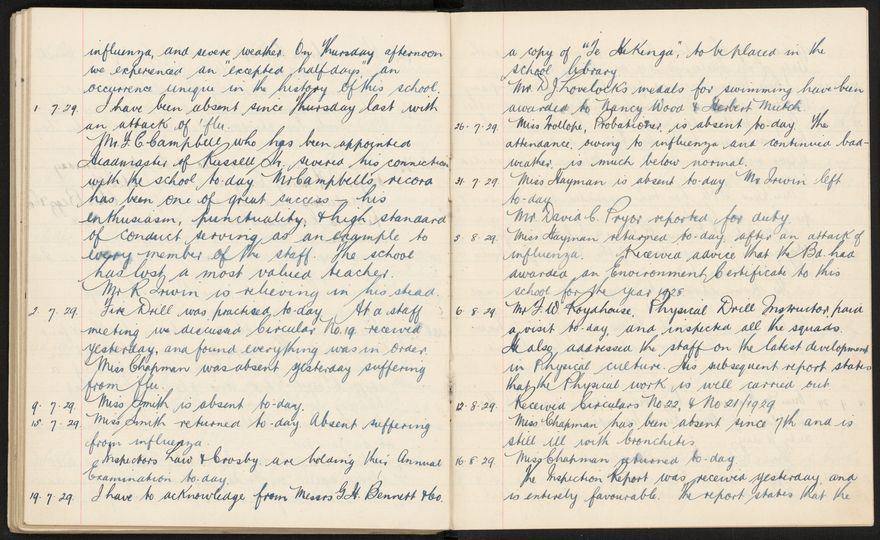 influenza, and severe weather. On Thursday afternoon
we experienced an "excepted half days" an
occurrence unique in the history of this school.
1. 7. 29. I have been absent since Thursday last with
an attack of 'flu.
Mr F C Campbell, who has been appointed
Headmaster of Russell St., severed his connection
with the school to-day Mr Campbell's record
has been one of great success – his
enthusiasm, punctuality, & high standard
of conduct serving as an example to
every member of the staff. The school
has lost a most valued teacher.
Mr R. Irwin is relieving in his stead.
2. 7. 29. Fire Drill was practised to-day. At a staff
meeting we discussed Circular No. 19 received
yesterday, and found everything was in order.
Miss Chapman was absent yesterday suffering
from 'flu.
9. 7. 29. Miss Smith is absent to-day.
15. 7. 29. Miss Smith returned to-day. Absent suffering
from influenza.
Inspectors Law & Crosby are holding their Annual
Examination to-day.
19. 7. 29. I have to acknowledge from Messrs G. H. Bennett & Co.
a copy of "Te Hekenga", to be placed in the
school library
Mr. D J Lovelock's medals for swimming have been
awarded to Nancy Wood & Herbert
26. 7. 29. Miss Trollope, Probationer, is absent to-day. The
attendance, owing to influenza and continued bad
weather, is much below normal.
31. 7. 29. Miss Hayman is absent to-day Mr Irwin left
to-day
Mr. David C. Pryor reported for duty.
5. 8. 29. Miss Hayman returned to-day, after an attack of
influenza. Received advice that the Bd. had
awarded an Environment Certificate to this
school for the year 1928
6. 8. 29 Mr F. W. Roydhouse, Physical Drill Instructor, paid
a visit to-day and inspected all the squads.
He also addressed the staff on the latest development
in Physical culture. His subsequent report states
that the Physical work is well carried out
12. 8. 29. Received Circulars No 22, & No 21/1929
Miss Chapman has been absent since 7th and is
still ill with bronchitis
16. 8. 29. Miss Chapman returned to-day
The Inspection Report was received yesterday, and
is entirely favourable. The report states that the